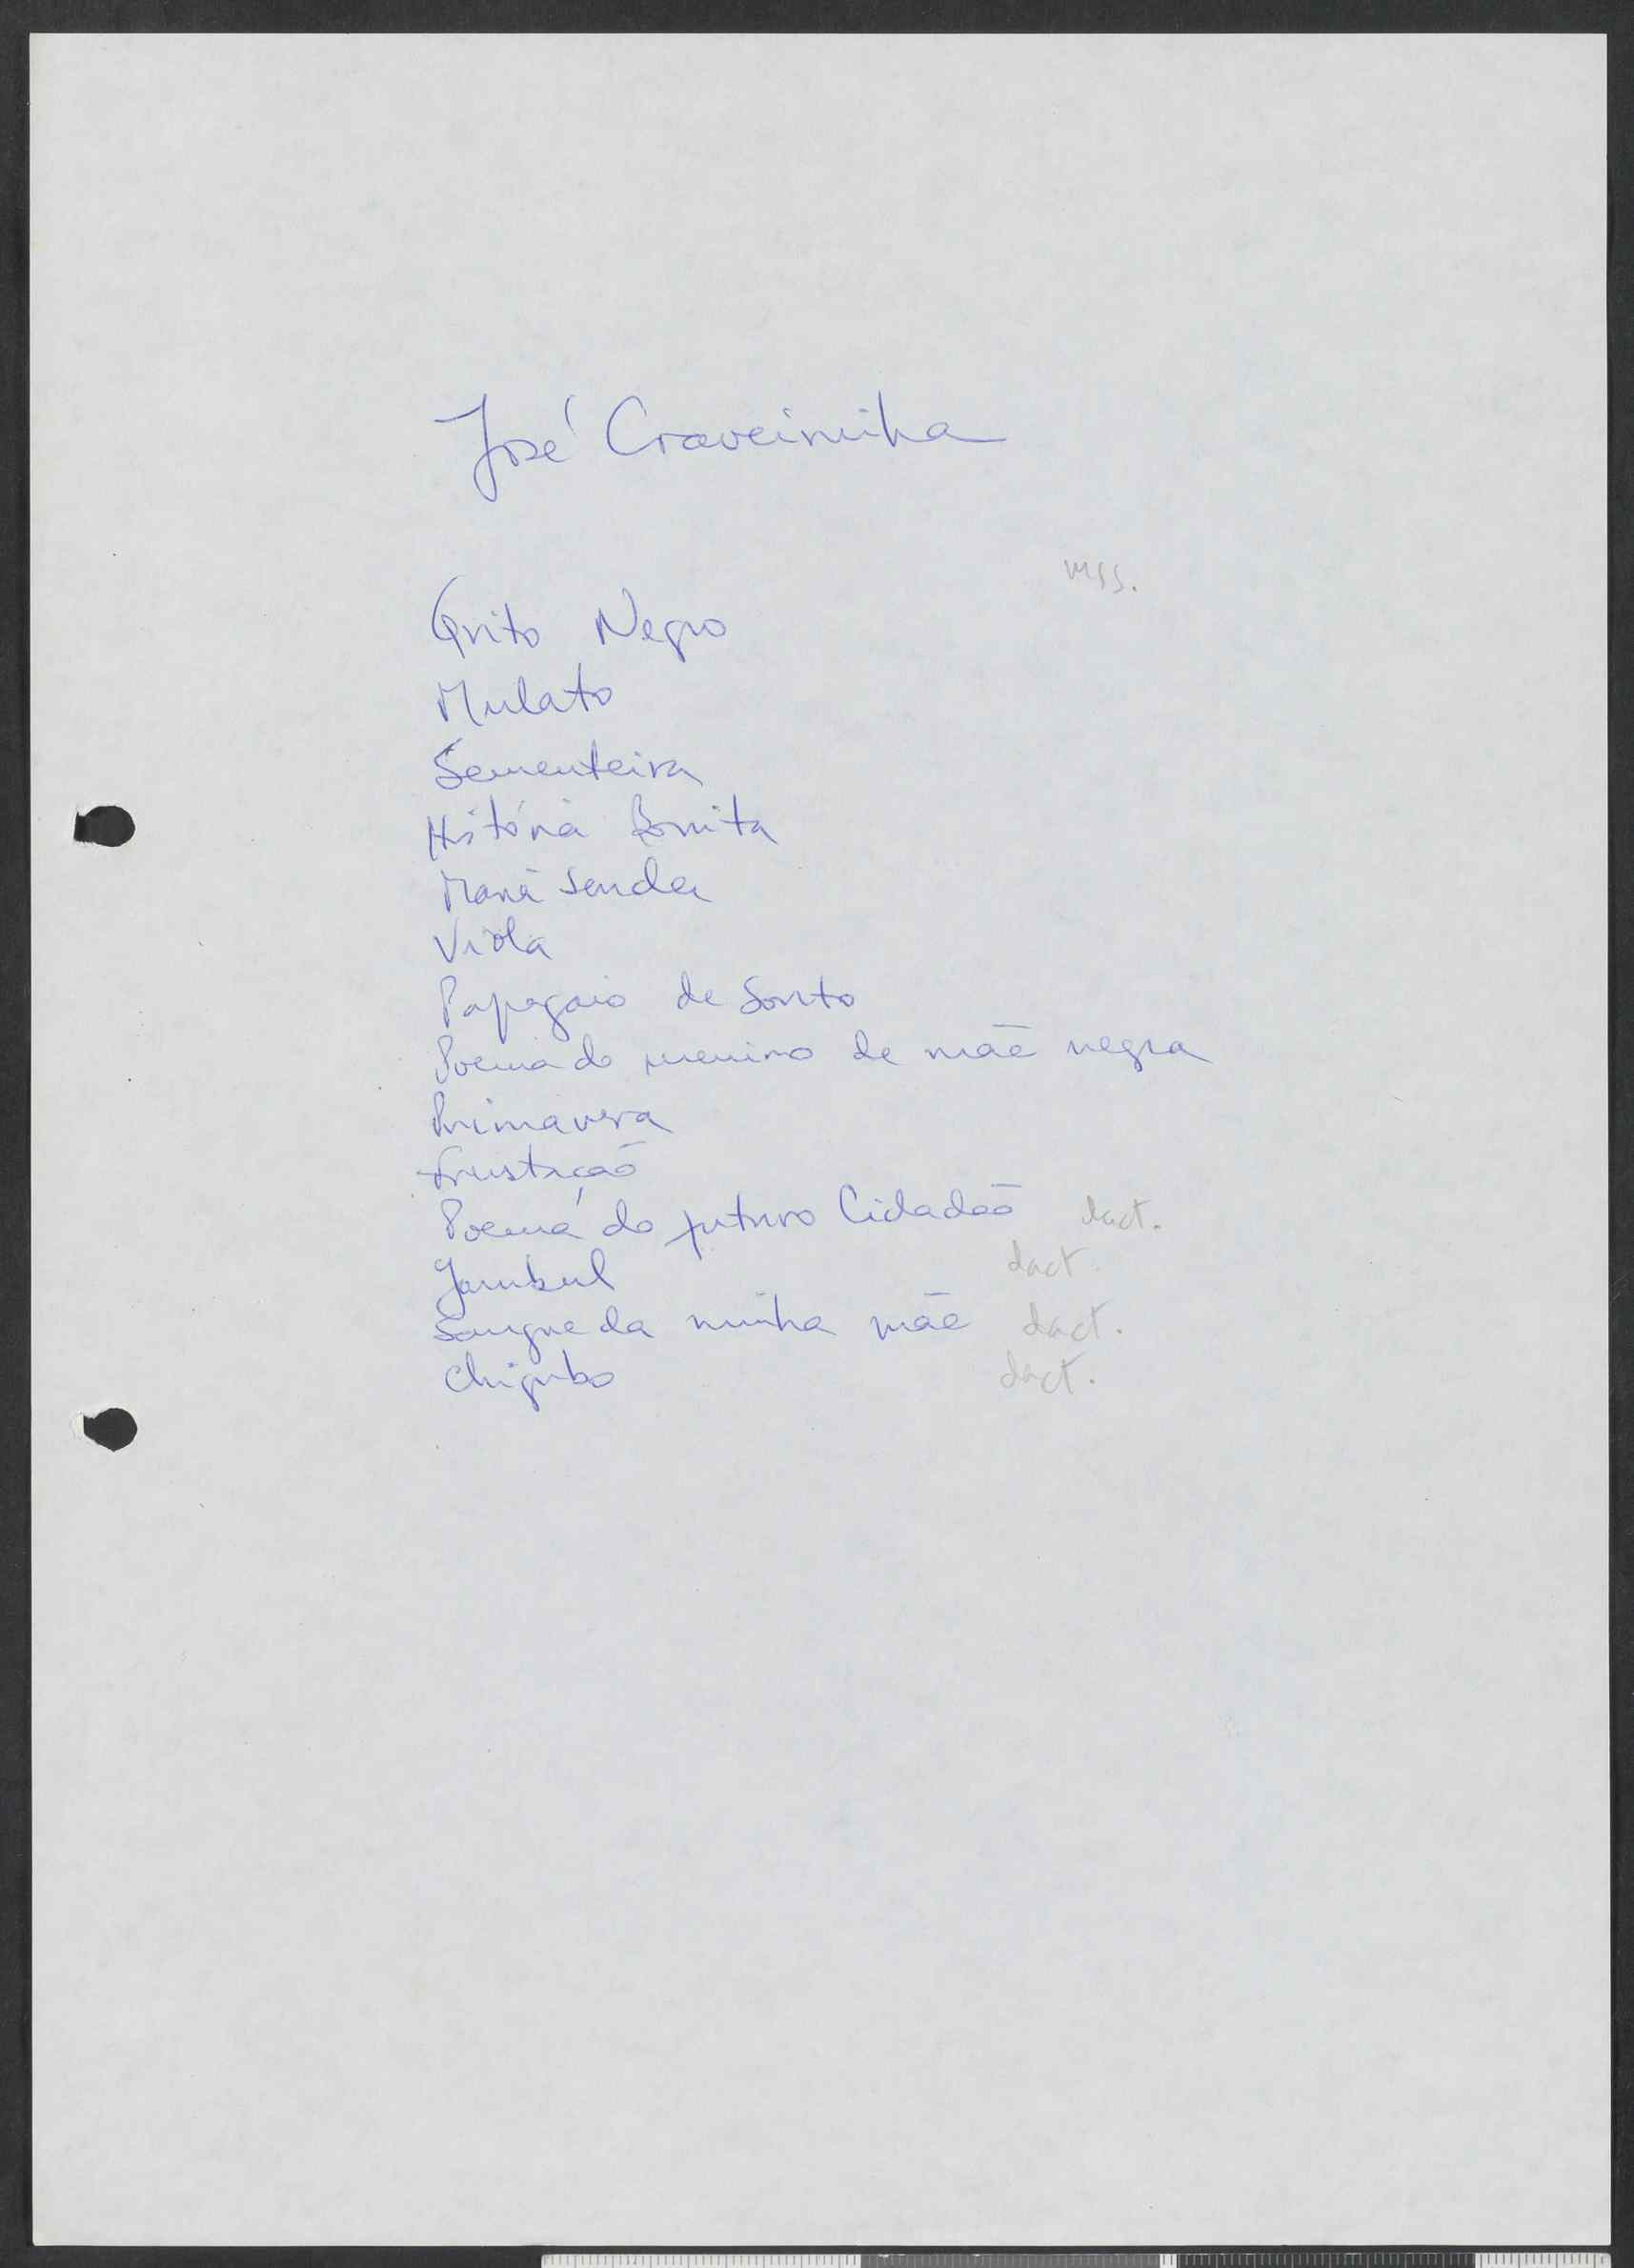 José Craveirinha
mss.
Grito Negro
Mulato
Sementeira
História Bonita
Maria Sende
Viola
Papagaio de Sonto
Poema do menino de mãe negra
Primavera
Frustação
Poema do futuro Cidadão dact.
Jambul dact.
Sangue da minha mãe dact.
Chigubo dact.